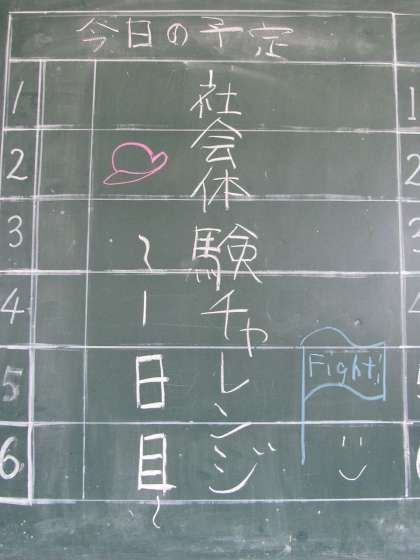 今日の予定
1
2
3
4
5
6
社会体験チャレンジ
~1日目~
Fight!
1
2
3
4
5
6